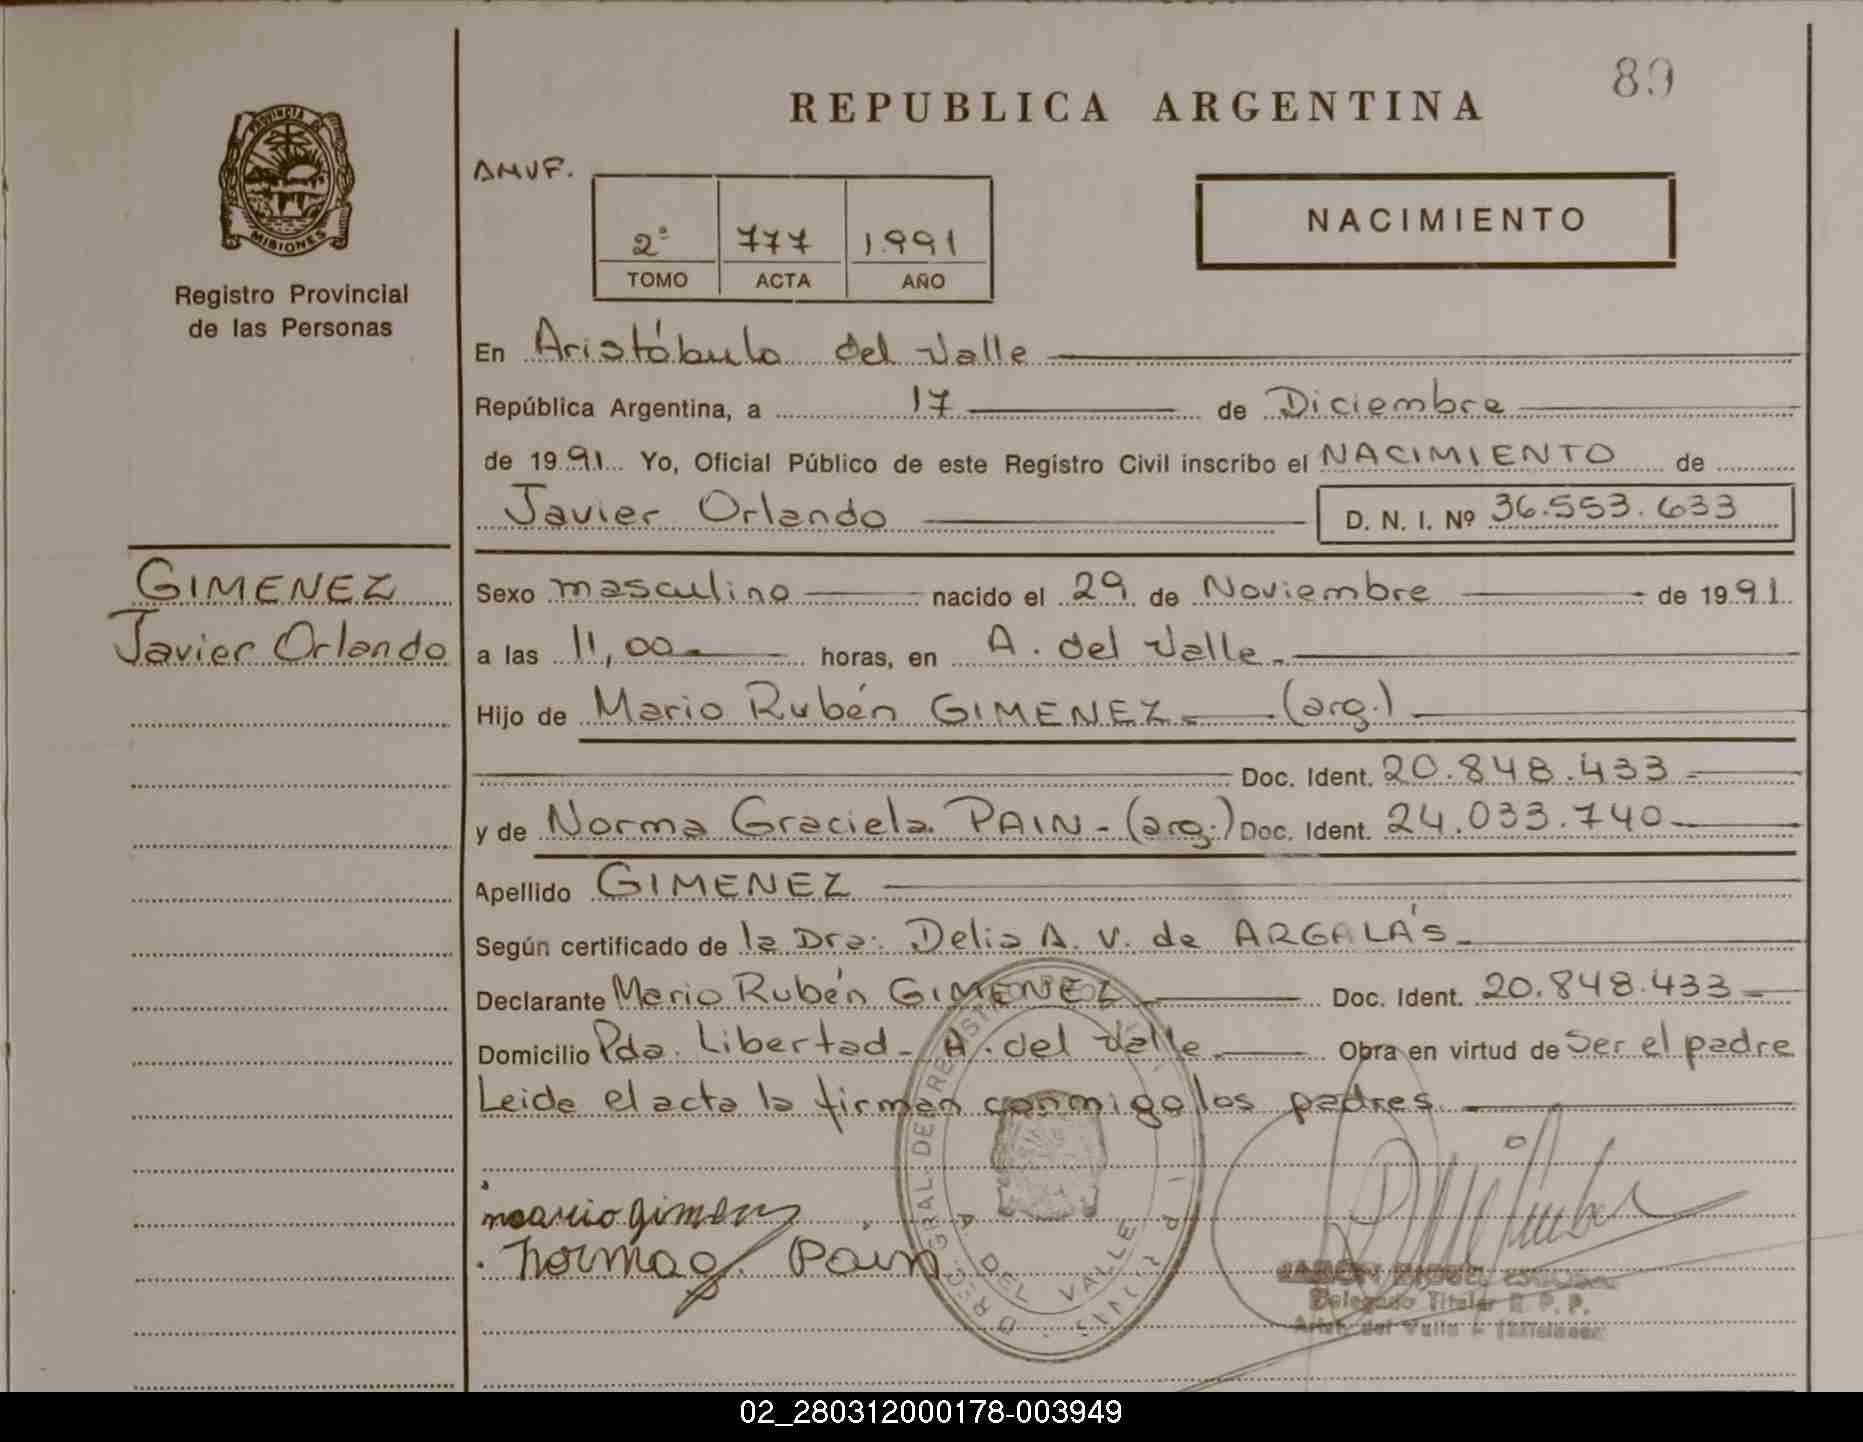 89
REPUBLICA ARGENTINA
PROVINCIA DE
MISIONES
Registro Provincial
de las Personas
AMVF.
2º 777 1.991
TOMO ACTA AÑO
NACIMIENTO
En Aristóbulo del Valle
República Argentina, a 17 de Diciembre
de 19 91 Yo, Oficial Público de este Registro Civil inscribo el NACIMIENTO de
Javier Orlando D. N. I. Nº 36.553.633
GIMENEZ
Javier Orlando
Sexo masculino nacido el 29 de Noviembre de 19 91
a las 11,00 horas, en A. del Valle.
Hijo de Mario Rubén GIMENEZ (arg.)
Doc. Ident. 20.848.433
y de Norma Graciela PAIN - (arg.) Doc. Ident. 24.033.740
Apellido GIMENEZ
Según certificado de la Dra. Delia A. V. de ARGALÁS
Declarante Mario Rubén GIMENEZ Doc. Ident. 20.848.433
Domicilio Pda. Libertad - A. del Valle Obra en virtud de Ser el padre
Leida el acta la firman conmigo los padres
mario gimenez
norma g. Pain
A. DEL VALLE
MISIONES
Delegado Titular R. P. P.
Arist. del Valle - (Misiones)
02_280312000178-003949